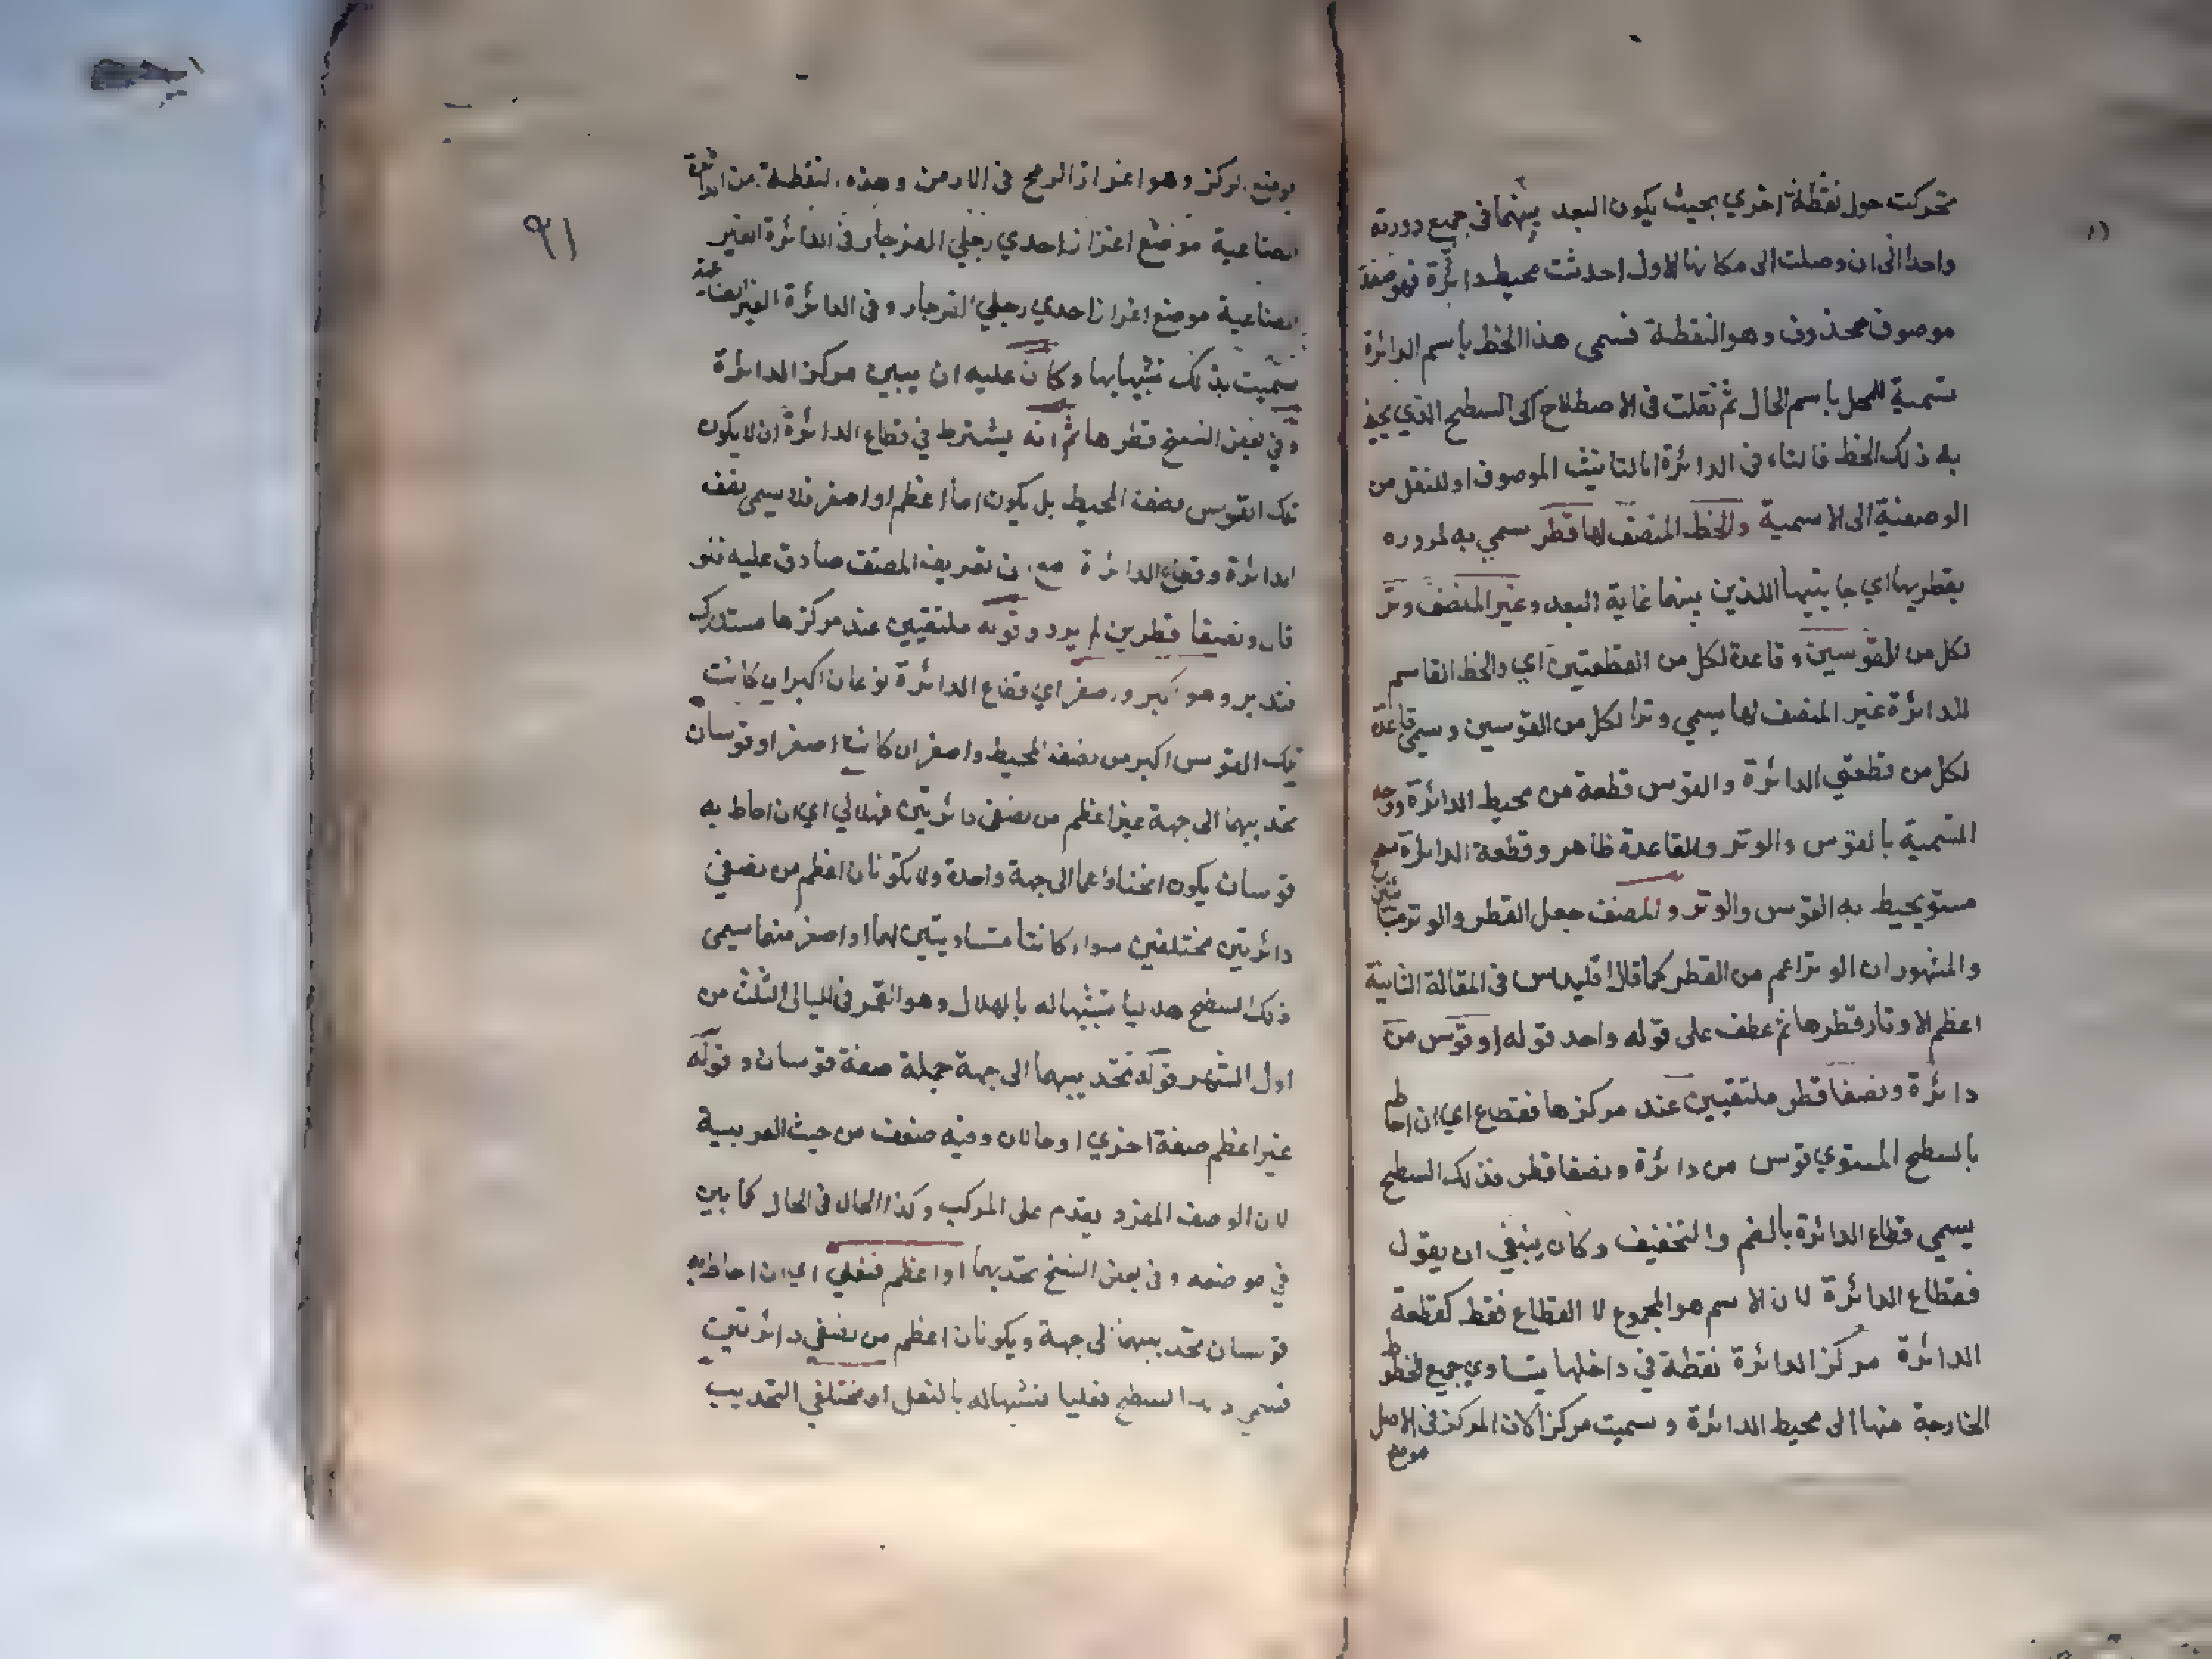 تحركت حول نقطة اخري بحيث يكون البعد بينهما في جميع دورته
واحدا الى ان وصلت الى مكانها الاول احدثت محيط دائرة فهو صفة
موصوف محذوف وهو النقطة فسمي هذا الخط باسم الدائرة
تسمية للمحل باسم الحال ثم نقلت في الاصطلاح الى السطح الذي يحيط
به ذلك الخط فالتاء في الدائرة اما لتانيث الموصوف او للنقل من
الوصفية الى الاسمية والخط المنصف لها قطر سمي به لمروره
بقطريها اي جانبيها اللذين بينهما غاية البعد وغير المنصف وتر
لكل من القوسين وقاعدة لكل من القطعتين اي والخط القاسم
للدائرة غير المنصف لها يسمي وترا لكل من القوسين ويسمي قاعدة
لكل من قطعتي الدائرة والقوس قطعة من محيط الدائرة ووجه
التسمية بالقوس والوتر والقاعدة ظاهر وقطعة الدائرة سطح
مستو يحيط به القوس والوتر والمصنف جعل القطر والوتر متباينين
والمشهور ان الوتر اعم من القطر كما قال اقليدس في المقالة الثانية
اعظم الاوتار قطرها ثم عطف على قوله واحد قوله او قوس من
دائرة ونصفا قطر ملتقيين عند مركزها فقطاع اي ان احاط
بالسطح المستوي قوس من دائرة ونصفا قطر فذلك السطح
يسمي قطاع الدائرة بالضم والتخفيف وكان ينبغي ان يقول
فقطاع الدائرة لان الاسم هو المجموع لا القطاع فقط كقطعة
الدائرة مركز الدائرة نقطة في داخلها يتساوي جميع الخطوط
الخارجة منها الى محيط الدائرة وسميت مركزا لان المركز في الاصل
موضع
٩١
موضع الركز وهو اغتراز الرمح في الارض وهذه النقطة من الدائرة
الصناعية موضع اغتراز احدي رجلي الفرجار في الدائرة الغير
الصناعية موضع اغتراز احدي رجلي الفرجار وفي الدائرة الغير الصناعية
سميت بذلك تشبيها بها وكان عليه ان يبين مركز الدائرة
وفي بعض النسخ قطرها ثم انه يشترط في قطاع الدائرة ان لا يكون
تلك القوس نصف المحيط بل يكون اما اعظم او اصغر فلا يسمي نصف
الدائرة وقطاع الدائرة مع ان تعريف المصنف صادق عليه فلو
قال ونصفا قطرين لم يرد وقوله ملتقيين عند مركزها مستدرك
فتدبر وهو اكبر واصغر اي قطاع الدائرة نوعان اكبر ان كانت
تلك القوس اكبر من نصف المحيط واصغر ان كانت اصغر او قوسان
تحديبهما الى جهة غير اعظم من نصفي دائرتين فهلالي اي ان احاط به
قوسان يكون انحناؤهما الى جهة واحدة ولا يكونان اعظم من نصفي
دائرتين مختلفين سواء كانتا متساويتين لهما او اصغر منهما سمي
ذلك السطح هلاليا تشبيها له بالهلال وهو القمر في الليالي الثلث من
اول الشهر قوله تحديبهما الى جهة جملة صفة قوسان وقوله
غير اعظم صفة اخري او حالان وفيه ضعف من حيث العربية
لان الوصف المفرد يقدم على المركب وكذا الحال في الحال كما بين
في موضعه وفي بعض النسخ تحديبهما او اعظم فنعلي اي ان احاط به
قوسان تحديبهما الى جهة ويكونان اعظم من نصفي دائرتين
فسمي السطح نعليا تشبيها له بالنعل او مختلفي التحديب